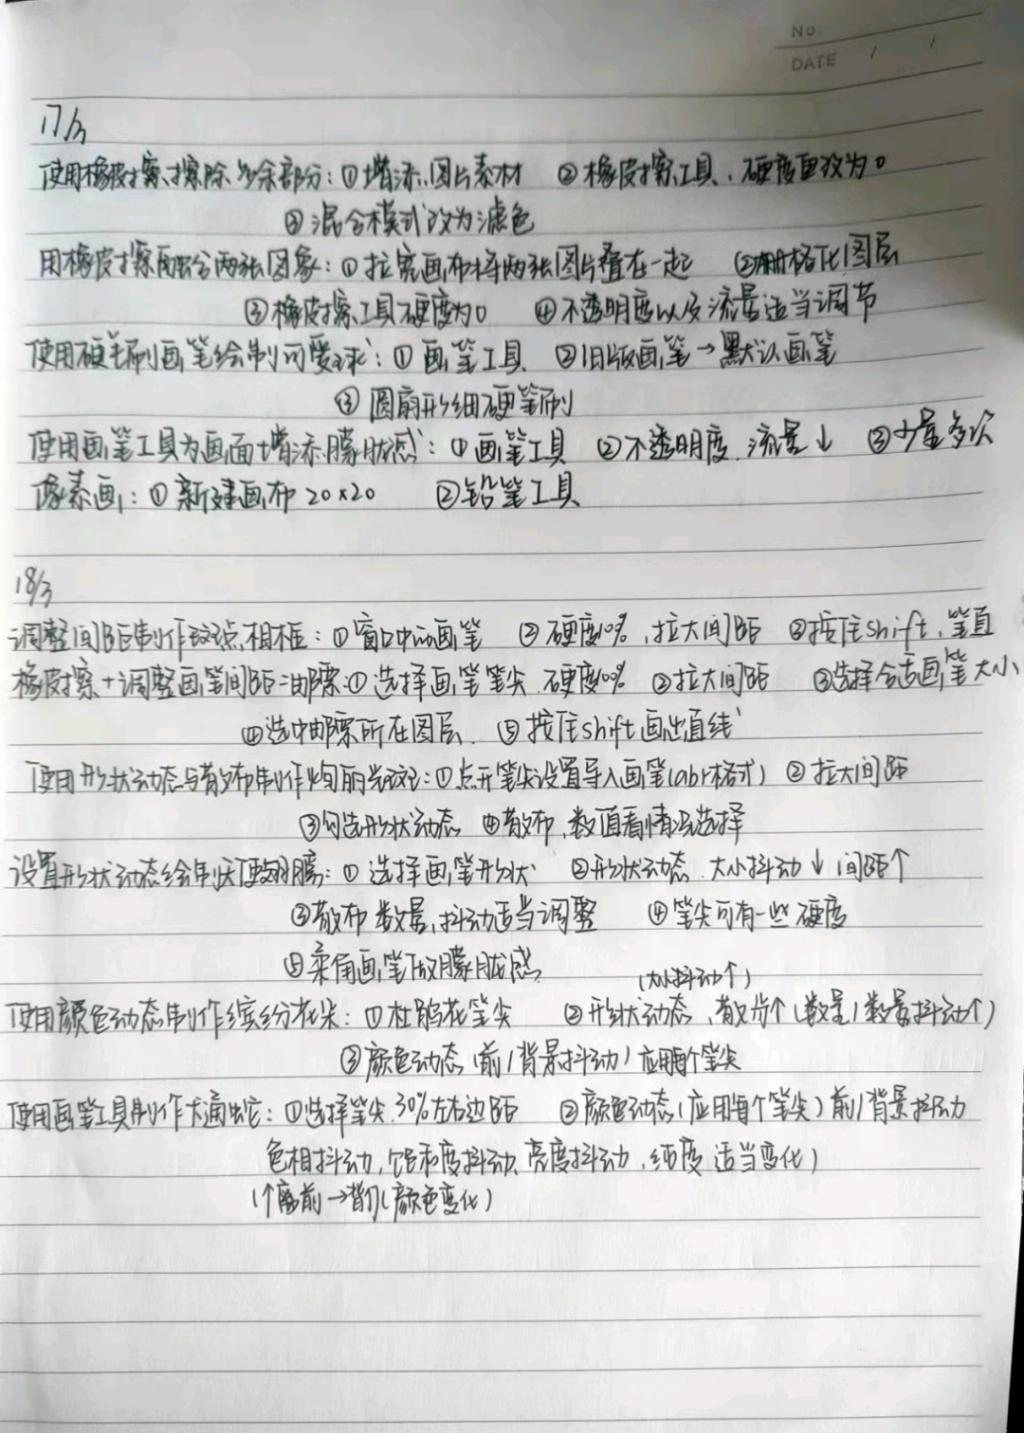 No.
DATE / /
17/3
使用橡皮擦擦除多余部分：①增添图片素材 ②橡皮擦工具，硬度更改为0
③混合模式改为滤色
用橡皮擦融合两张图象：①拉宽画布将两张图片叠在一起 ②栅格化图层
③橡皮擦工具硬度为0 ④不透明度以及流量适当调节
使用硬毛刷画笔绘制可爱球：①画笔工具 ②旧版画笔→默认画笔
③圆扇形细硬笔刷
使用画笔工具为画面增添朦胧感：①画笔工具 ②不透明度、流量↓ ③少量多次
像素画：①新建画布20×20 ②铅笔工具
18/3
调整间距制作波点相框：①窗口中的画笔 ②硬度10%，拉大间距 ③按住shift，笔直
橡皮擦+调整画笔间距=邮票：①选择画笔笔尖，硬度100% ②拉大间距 ③选择合适画笔大小
④选中邮票所在图层 ⑤按住shift画出直线
使用形状动态与散布制作绚丽光斑：①点开笔尖设置导入画笔(abr格式) ②拉大间距
③勾选形状动态 ④散布，数值看情况选择
设置形状动态绘制天使翅膀：①选择画笔形状 ②形状动态，大小抖动↓ 间距↑
③散布 数量，抖动适当调整 ④笔尖可有一些硬度
⑤柔角画笔做朦胧感
(大小抖动↑)
使用颜色动态制作缤纷花朵：①杜鹃花笔尖 ②形状动态，散步↑(数量/数量抖动↑)
③颜色动态(前/背景抖动)应用每个笔尖
使用画笔工具制作卡通蛇：①选择笔尖，30%左右边距 ②颜色动态(应用每个笔尖)前/背景抖动
色相抖动，饱和度抖动，亮度抖动，纯度 适当变化)
(个离前→背)(颜色变化)